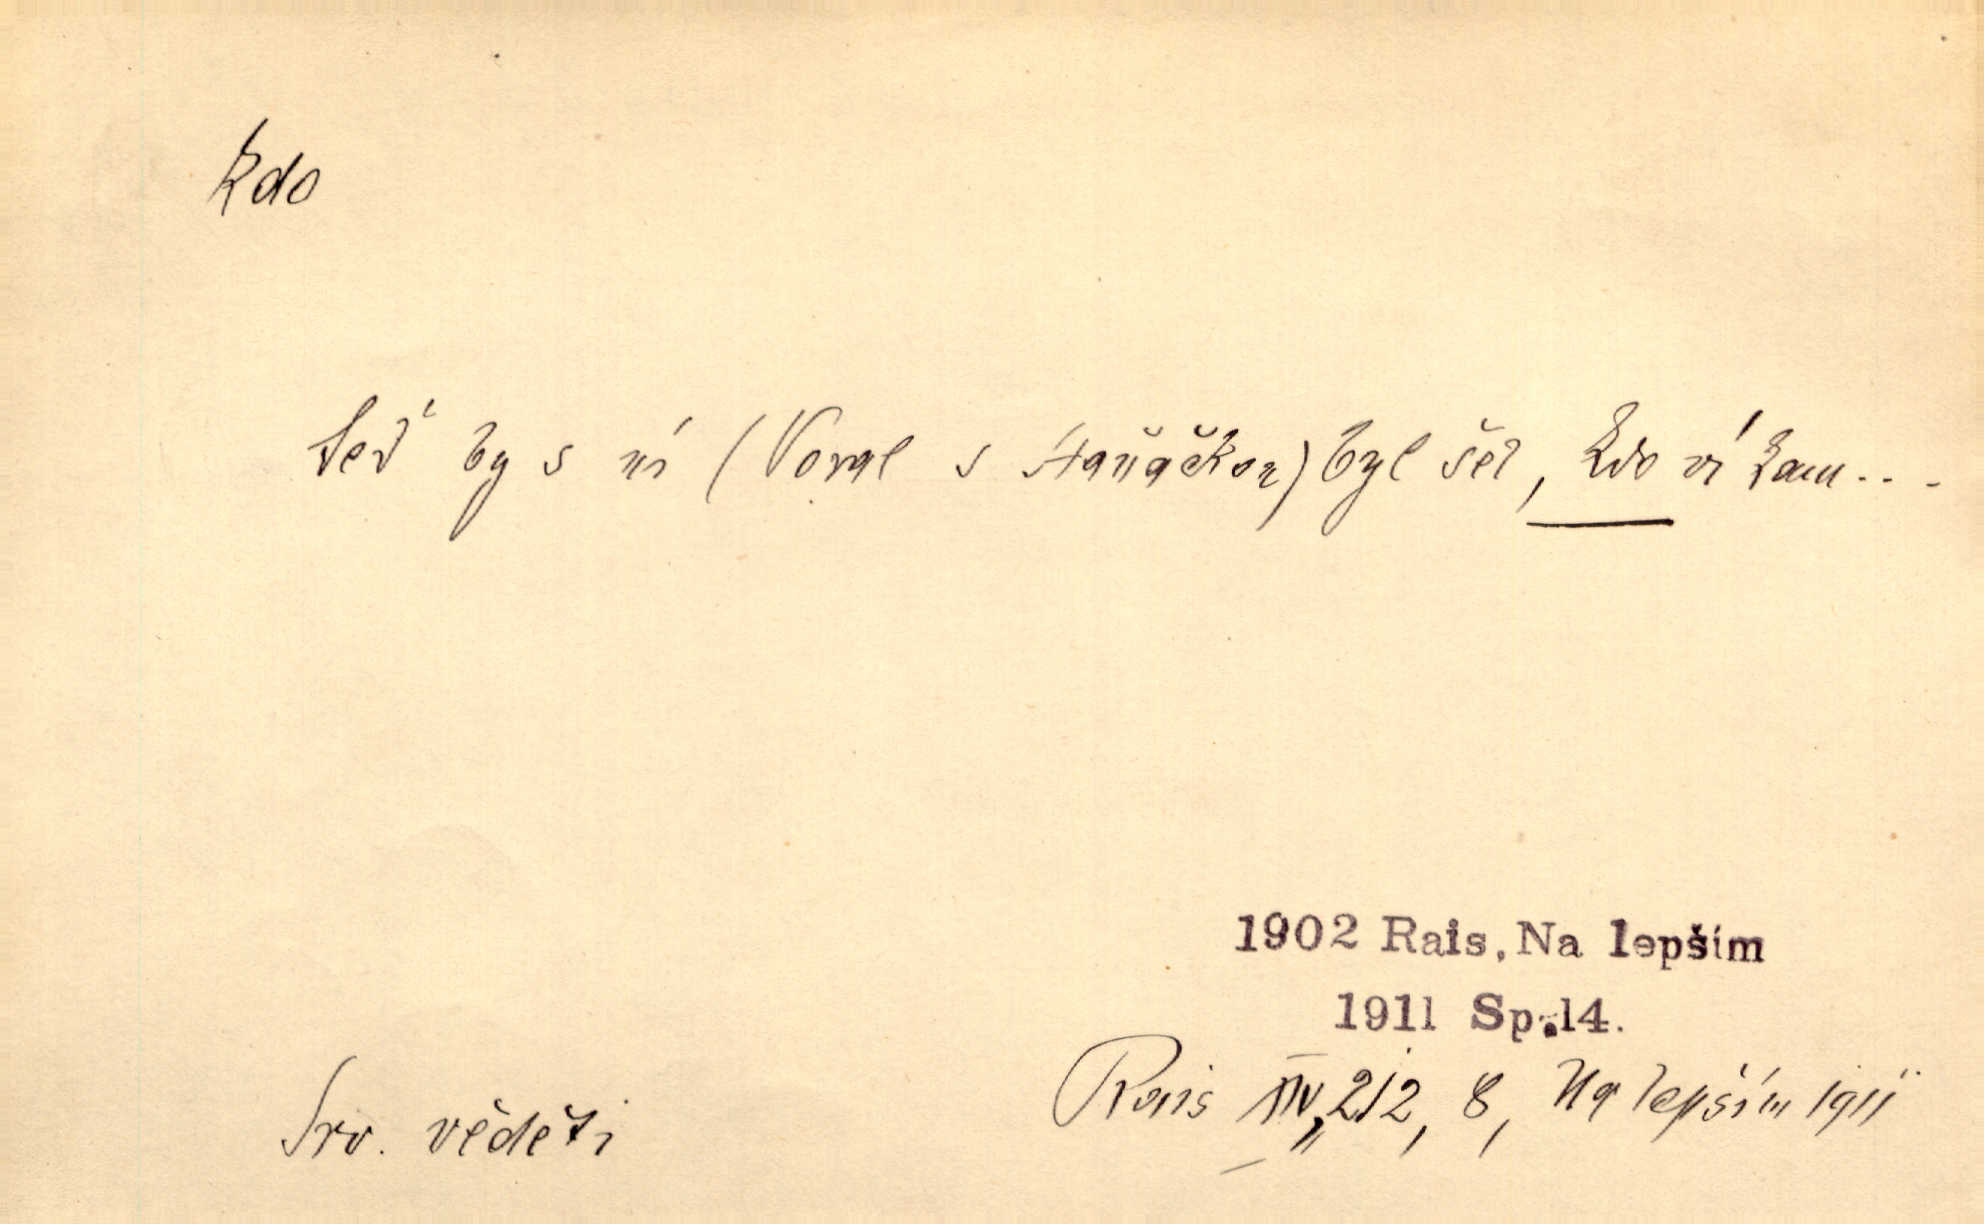 kdo
teď by s ní (Voral s Staňačkou) byl šel, kdo ví kam...
1902 Rais, Na lepším
1911 Sp. 14.
Rais XIV, 212, 8, Na lepším 1911
Srv. věděti